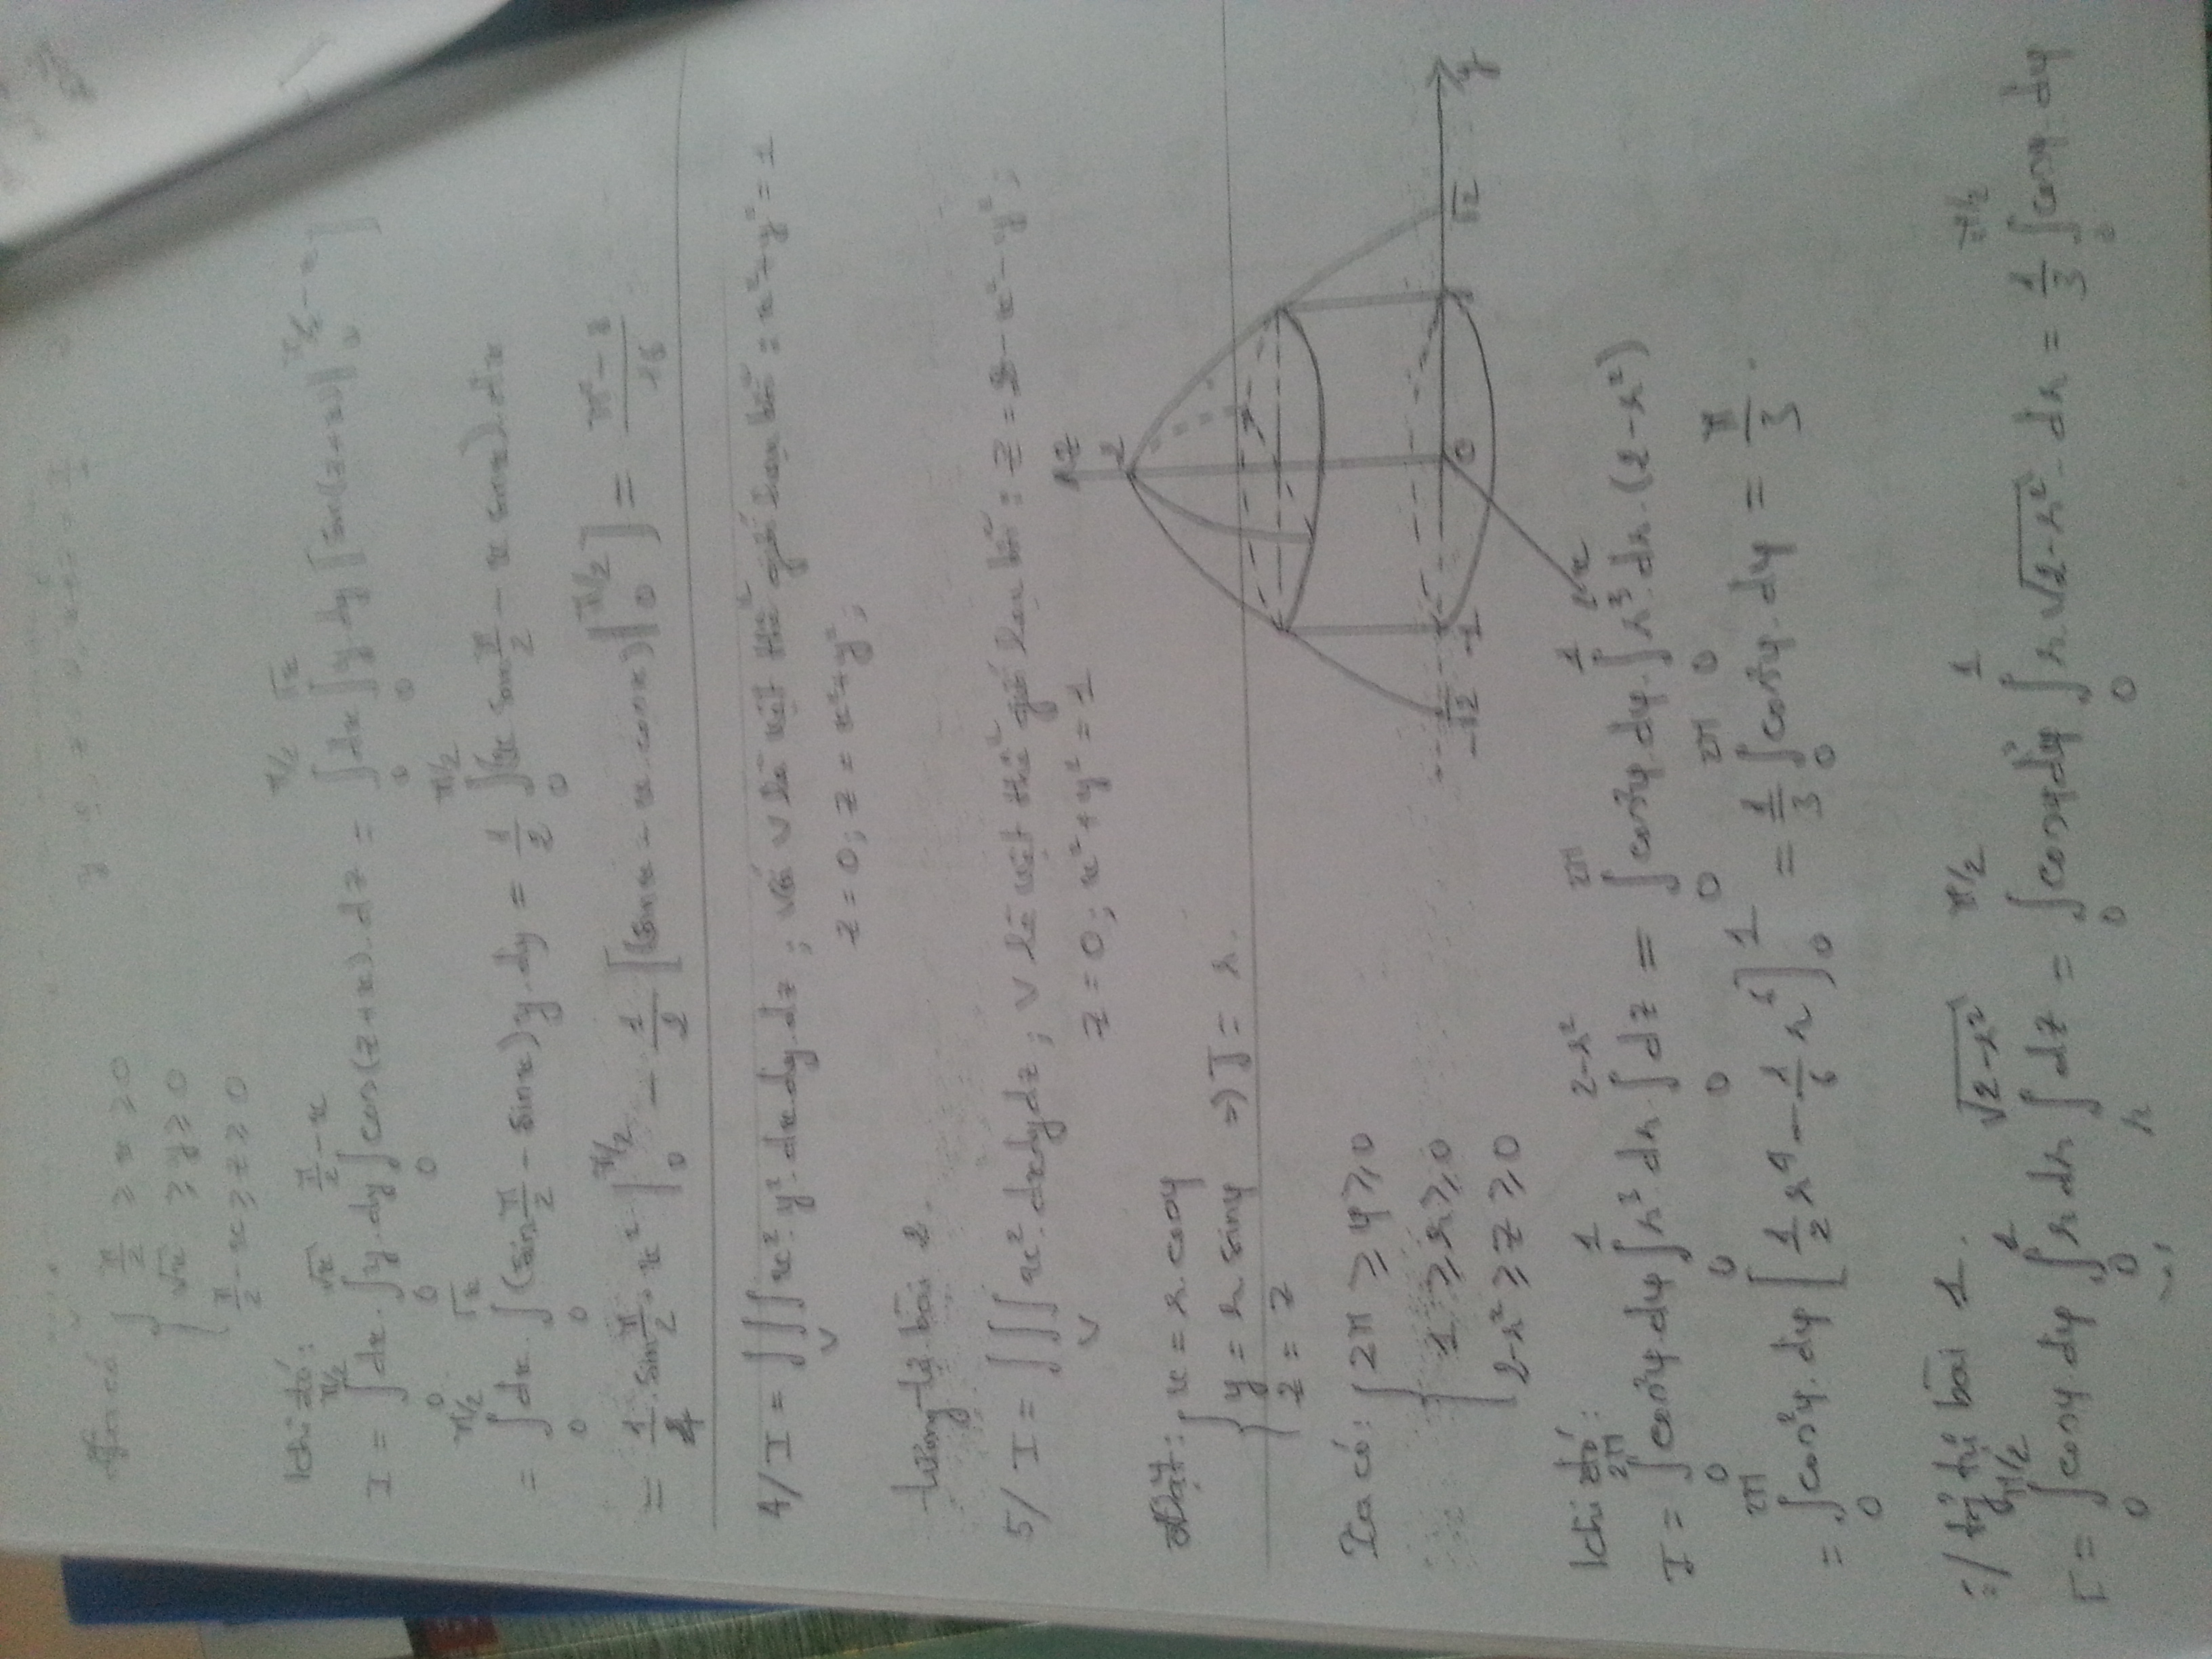 Ta có { π/2 ≥ x ≥ 0
√x ≥ y ≥ 0
π/2 - x ≥ z ≥ 0
Khi đó:
I = ∫₀^{π/2} dx. ∫₀^{√x} y. dy ∫₀^{π/2 - x} cos(z+x). dz = ∫₀^{π/2} dx ∫₀^{√x} y. dy [sin(z+x)|₀^{π/2 - x}]
= ∫₀^{π/2} dx. ∫₀^{√x} (sin π/2 - sinx) y. dy = 1/2 ∫₀^{π/2} (x sin π/2 - x sinx). dx
= 1/4 . sin π/2 . x² |₀^{π/2} - 1/2 [(sinx - x. cosx)|₀^{π/2}] = (π² - 8)/16
4/ I = ∫∫∫_V x². y². dx.dy.dz ; với V là vật thể giới hạn bởi : x² + y² = 1
z = 0; z = x² + y²;
tương tự bài 2.
5/ I = ∫∫∫_V x². dxdydz ; V là vật thể giới hạn bởi : z = 2 - x² - y²;
z = 0; x² + y² = 1
Đặt: { x = r. cosφ
y = r sinφ ⇒ J = r.
z = z
z
2
Ta có: { 2π ≥ φ ≥ 0
1 ≥ r ≥ 0
2 - r² ≥ z ≥ 0
-√2 -1 0 1 √2 y
x
Khi đó:
I = ∫₀^{2π} cos²φ. dφ ∫₀^1 r³ dr. ∫₀^{2-r²} dz = ∫₀^{2π} cos²φ. dφ. ∫₀^1 r³. dr. (2 - r²)
= ∫₀^{2π} cos²φ. dφ [1/2 r⁴ - 1/6 r⁶]₀^1 = 1/3 ∫₀^{2π} cos²φ. dφ = π/3 .
/ tỷ tự bài 1.
I = ∫₀^{π/2} cosφ. dφ ∫₀^1 r dr ∫_r^{√(2-r²)} dz = ∫₀^{π/2} cosφdφ ∫₀^1 r √(2-r²). dr = 1/3 ∫₀^{π/2} cosφ. dφ